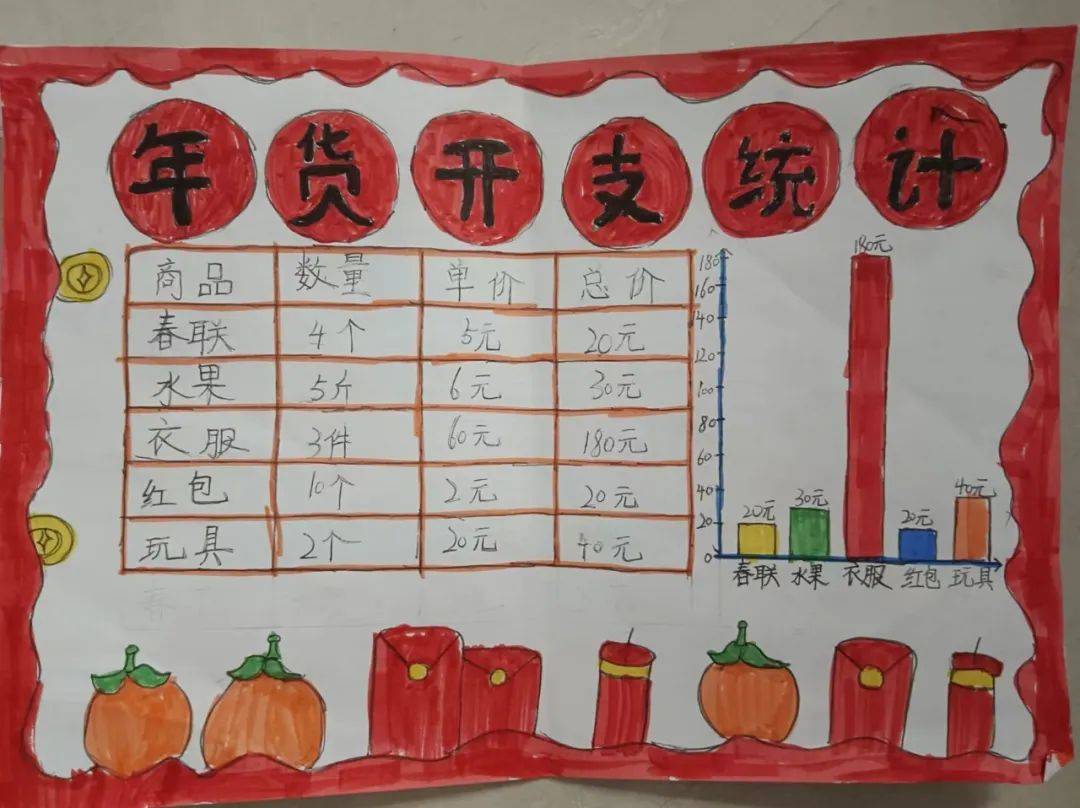 年货开支统计
商品 数量 单价 总价
春联 4个 5元 20元
水果 5斤 6元 30元
衣服 3件 60元 180元
红包 10个 2元 20元
玩具 2个 20元 40元
180元
180
160
140
120
100
80
60
40
20
0
20元 30元 20元 40元
春联 水果 衣服 红包 玩具